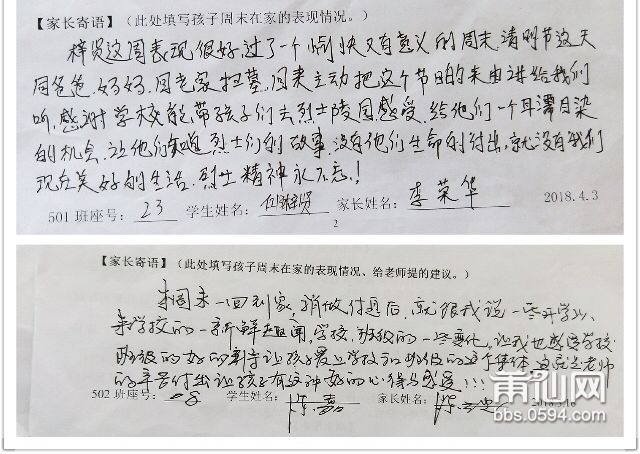 【家长寄语】（此处填写孩子周末在家的表现情况。）
梓贤这周表现很好，过了一个愉快又有意义的周末，清明节这天
同爸爸、妈妈、回老家扫墓，回来主动把这个节日的来由讲给我们
听，感谢学校能带孩子们去烈士陵园感受，给他们一个耳潭目染
的机会，让他们知道烈士们的故事，没有他们生命的付出，就没有我们
现在美好的生活，烈士精神永不忘！
501 班座号：23 学生姓名： 家长姓名：李荣华 2018.4.3
2
【家长寄语】（此处填写孩子周末在家的表现情况、给老师提的建议。）
本周末一回到家，稍做休息后，就跟我说一些开学以
来学校的一新鲜趣闻，学校、班级的一些变化，让我也感受学校
班级的好的事等让孩子爱上学校和班级的这个集体，这就是老师
的辛苦付出让孩子有这种好的心得与感受！！！
502 班座号：8 学生姓名： 家长姓名： 2018.3.18
莆仙网
bbs.0594.com